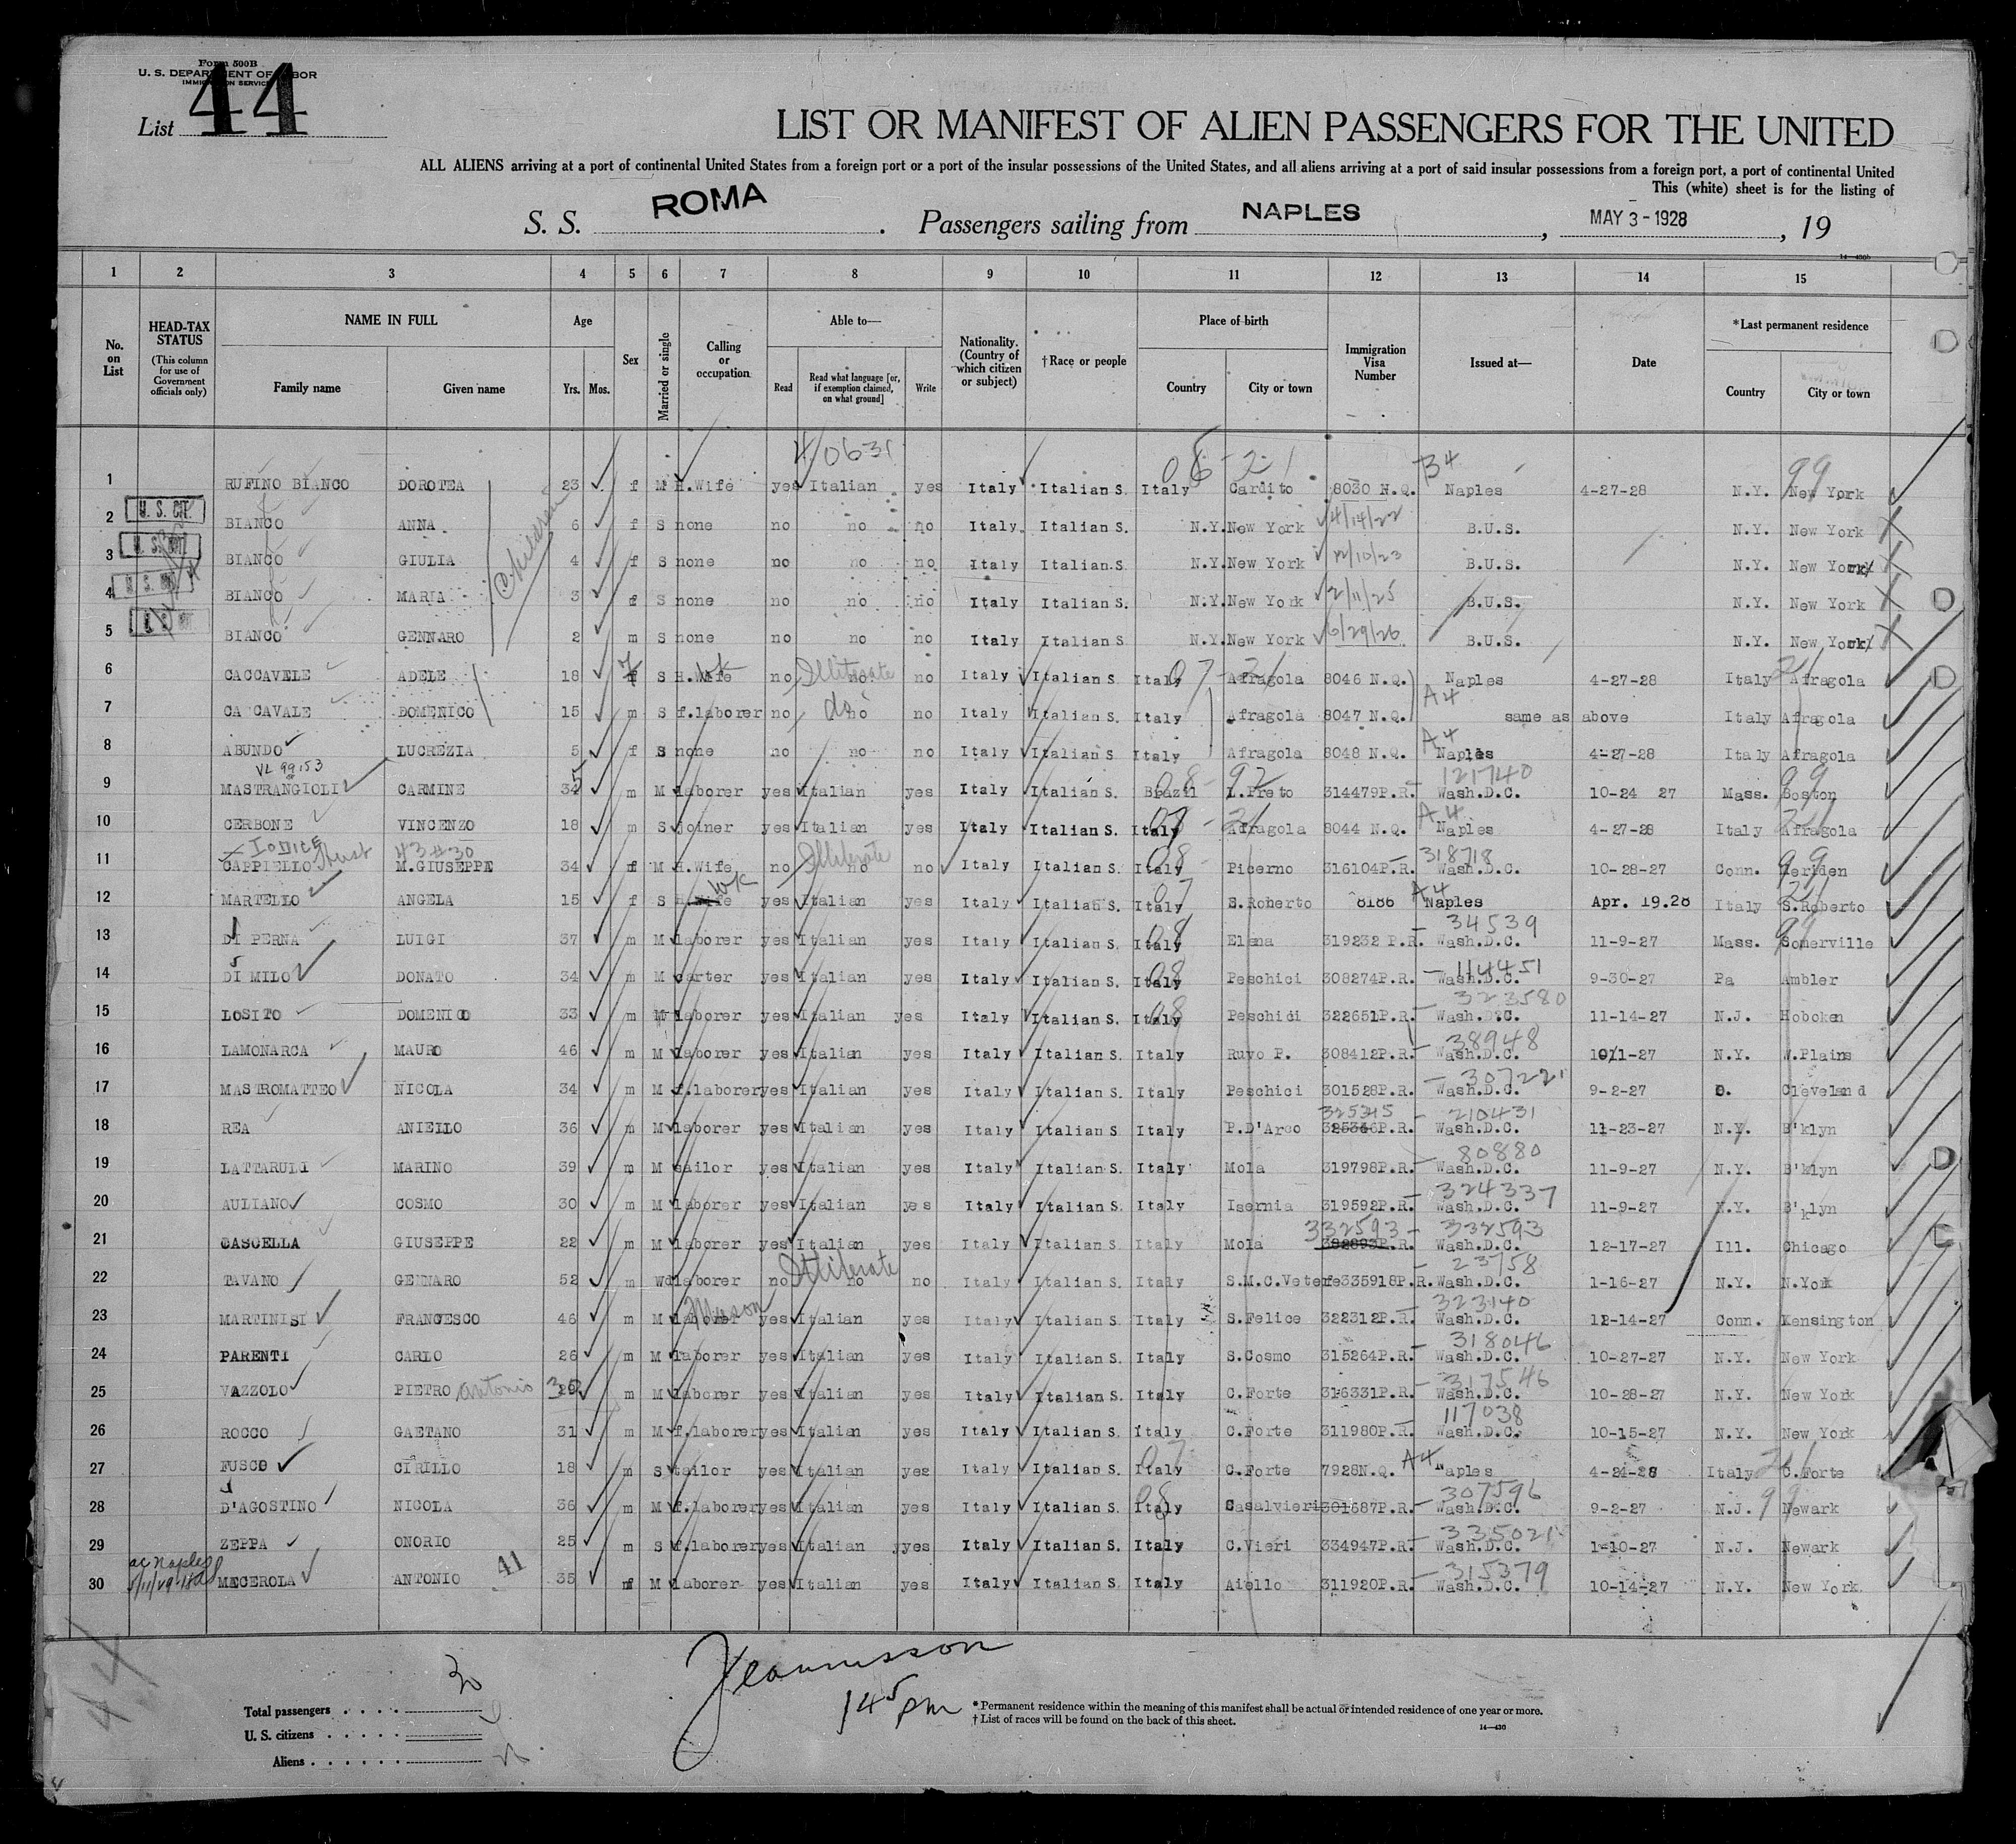 Form 500B
U. S. DEPARTMENT OF LABOR
IMMIGRATION SERVICE
List 44
LIST OR MANIFEST OF ALIEN PASSENGERS FOR THE UNITED
ALL ALIENS arriving at a port of continental United States from a foreign port or a port of the insular possessions of the United States, and all aliens arriving at a port of said insular possessions from a foreign port, a port of continental United
This (white) sheet is for the listing of
S. S. ROMA . Passengers sailing from NAPLES , MAY 3-1928 , 19
14—430b
1 2 3 4 5 6 7 8 9 10 11 12 13 14 15
No. on List HEAD-TAX STATUS (This column for use of Government officials only) NAME IN FULL Family name Given name Age Yrs. Mos. Sex Married or single Calling or occupation Able to— Read Read what language [or, if exemption claimed, on what ground] Write Nationality. (Country of which citizen or subject) †Race or people Place of birth Country City or town Immigration Visa Number Issued at— Date *Last permanent residence Country City or town
1 RUFINO BIANCO DOROTEA 23 f M H.Wife yes Italian yes Italy Italian S. Italy Cardito 8030 N.Q. Naples 4-27-28 N.Y. New York
2 U. S. CIT. BIANCO ANNA 6 f S none no no no Italy Italian S. N.Y. New York 4/14/22 B.U.S. N.Y. New York
3 BIANCO GIULIA 4 f S none no no no Italy Italian S. N.Y. New York 12/10/23 B.U.S. N.Y. New York
4 BIANCO MARIA 3 f S none no no no Italy Italian S. N.Y. New York 2/11/25 B.U.S. N.Y. New York
5 BIANCO GENNARO 2 m S none no no no Italy Italian S. N.Y. New York 6/29/26 B.U.S. N.Y. New York
Children
6 CACCAVELE ADELE 18 f S H.Wife wk no Illiterate no no Italy Italian S. Italy Afragola 8046 N.Q. Naples 4-27-28 Italy Afragola
7 CACCAVALE DOMENICO 15 m S f.laborer no do no no Italy Italian S. Italy Afragola 8047 N.Q. A4 same as above Italy Afragola
8 ABUNDO LUCREZIA 5 f S none no no no Italy Italian S. Italy Afragola 8048 N.Q. A4 Naples 4-27-28 Italy Afragola
VL 99153
9 MASTRANGIOLI CARMINE 34 m M laborer yes Italian yes Italy Italian S. Brazil L.Preto 314479P.R. 121740 Wash.D.C. 10-24 27 Mass. Boston
10 CERBONE VINCENZO 18 m S joiner yes Italian yes Italy Italian S. Italy Afragola 8044 N.Q. A4 Naples 4-27-28 Italy Afragola
IODICE
11 CAPPIELLO M.GIUSEPPE 34 f M H.Wife no Illiterate no no Italy Italian S. Italy Picerno 316104P.R. 318718 Wash.D.C. 10-28-27 Conn. Meriden
12 MARTELLO ANGELA 15 f S H.Wife wk yes Italian yes Italy Italian S. Italy S.Roberto 8186 A4 Naples Apr. 19.28 Italy S.Roberto
13 DI PERNA LUIGI 37 m M laborer yes Italian yes Italy Italian S. Italy Elena 319232 P.R. 34539 Wash.D.C. 11-9-27 Mass. Somerville
14 DI MILO DONATO 34 m M carter yes Italian yes Italy Italian S. Italy Peschici 308274P.R. 114451 Wash.D.C. 9-30-27 Pa Ambler
15 LOSITO DOMENICO 33 m M laborer yes Italian yes Italy Italian S. Italy Peschici 322651P.R. 323580 Wash.D.C. 11-14-27 N.J. Hoboken
16 LAMONARCA MAURO 46 m M laborer yes Italian yes Italy Italian S. Italy Ruvo P. 308412P.R. 38948 Wash.D.C. 10/1-27 N.Y. W.Plains
17 MASTROMATTEO NICOLA 34 m M f.laborer yes Italian yes Italy Italian S. Italy Peschici 301528P.R. 307221 Wash.D.C. 9-2-27 O. Cleveland
18 REA ANIELLO 36 m M laborer yes Italian yes Italy Italian S. Italy P.D'Arco 325345 325346P.R. 210431 Wash.D.C. 11-23-27 N.Y. B'klyn
19 LATTARULI MARINO 39 m M sailor yes Italian yes Italy Italian S. Italy Mola 319798P.R. 80880 Wash.D.C. 11-9-27 N.Y. B'klyn
20 AULIANO COSMO 30 m M laborer yes Italian yes Italy Italian S. Italy Isernia 319592P.R. 324337 Wash.D.C. 11-9-27 N.Y. B'klyn
21 CASCELLA GIUSEPPE 22 m M laborer yes Italian yes Italy Italian S. Italy Mola 332593 332593 Wash.D.C. 12-17-27 Ill. Chicago
22 TAVANO GENNARO 52 m Wd laborer no Illiterate no no Italy Italian S. Italy S.M.C.Vetere 335918P.R. 23758 Wash.D.C. 1-16-27 N.Y. N.York
23 MARTINISI FRANCESCO 46 m M laborer Mason yes Italian yes Italy Italian S. Italy S.Felice 322312P.R. 323140 Wash.D.C. 12-14-27 Conn. Kensington
24 PARENTI CARLO 26 m M laborer yes Italian yes Italy Italian S. Italy S.Cosmo 315264P.R. 318046 Wash.D.C. 10-27-27 N.Y. New York
25 VAZZOLO PIETRO Antonio m M laborer yes Italian yes Italy Italian S. Italy C.Forte 316331P.R. 317546 Wash.D.C. 10-28-27 N.Y. New York
26 ROCCO GAETANO 31 m M f.laborer yes Italian yes Italy Italian S. Italy C.Forte 311980P.R. 117038 Wash.D.C. 10-15-27 N.Y. New York
27 FUSCO CIRILLO 18 m S tailor yes Italian yes Italy Italian S. Italy C.Forte 7928N.Q. A4 Naples 4-24-28 Italy C.Forte
28 D'AGOSTINO NICOLA 36 m M f.laborer yes Italian yes Italy Italian S. Italy Casalvieri 301687P.R. 307596 Wash.D.C. 9-2-27 N.J. Newark
29 ZEPPA ONORIO 25 m S f.laborer yes Italian yes Italy Italian S. Italy C.Vieri 334947P.R. 335021 Wash.D.C. 1-10-27 N.J. Newark
30 MECEROLA ANTONIO 41 35 m M laborer yes Italian yes Italy Italian S. Italy Aiello 311920P.R. 315379 Wash.D.C. 10-14-27 N.Y. New York
44
145 pm
Total passengers 30
U. S. citizens
Aliens
* Permanent residence within the meaning of this manifest shall be actual or intended residence of one year or more.
† List of races will be found on the back of this sheet.
14—430